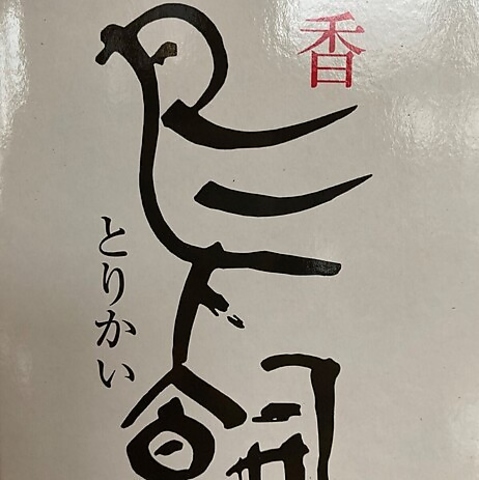 香
鳥飼
とりかい